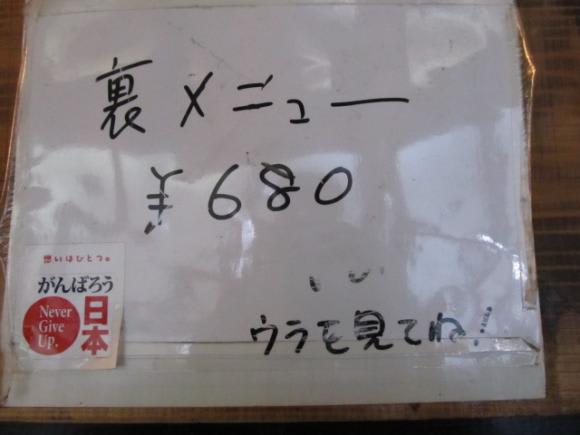 裏メニュー
¥680
ウラを見てね!
想いはひとつ。
がんばろう
日本
Never
Give
Up.